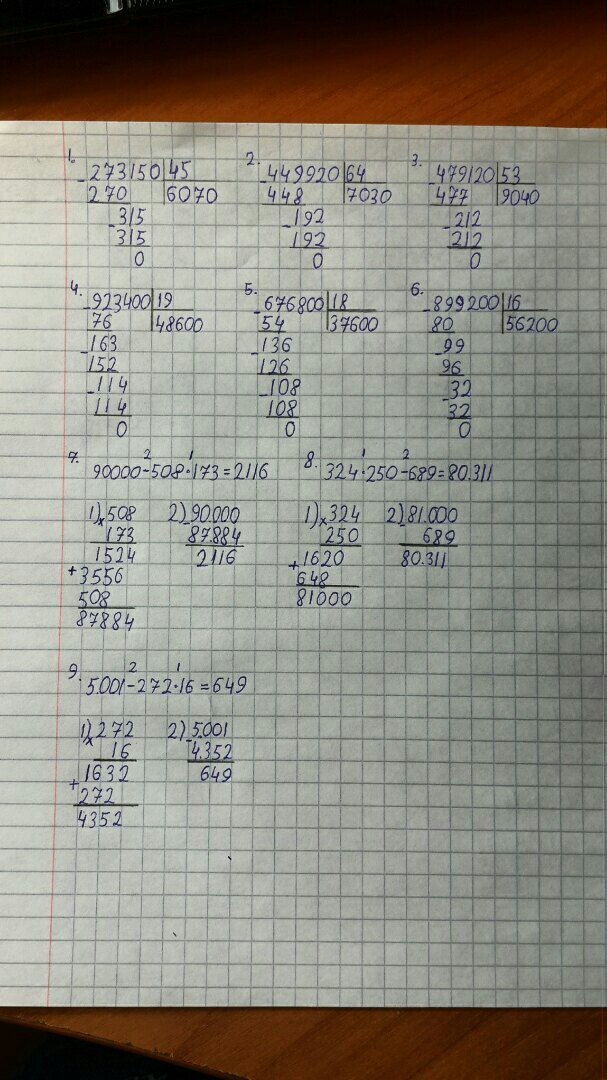 1. 273150 45
- 270 6070
- 315
315
0
2. 449920 64
- 448 7030
- 192
192
0
3. 479120 53
- 477 9040
- 212
212
0
4. 923400 19
- 76 48600
- 163
152
- 114
114
0
5. 676800 18
- 54 37600
- 136
126
- 108
108
0
6. 899200 16
- 80 56200
- 99
96
- 32
32
0
2 1
7. 90000-508·173=2116
1) 508
× 173
1524
+3556
508
87884
2) 90.000
- 87.884
2116
1 2
8. 324·250-689=80.311
1) 324
× 250
+1620
648
81000
2) 81.000
- 689
80.311
2 1
9. 5.001-272·16=649
1) 272
× 16
1632
+272
4352
2) 5.001
- 4.352
649